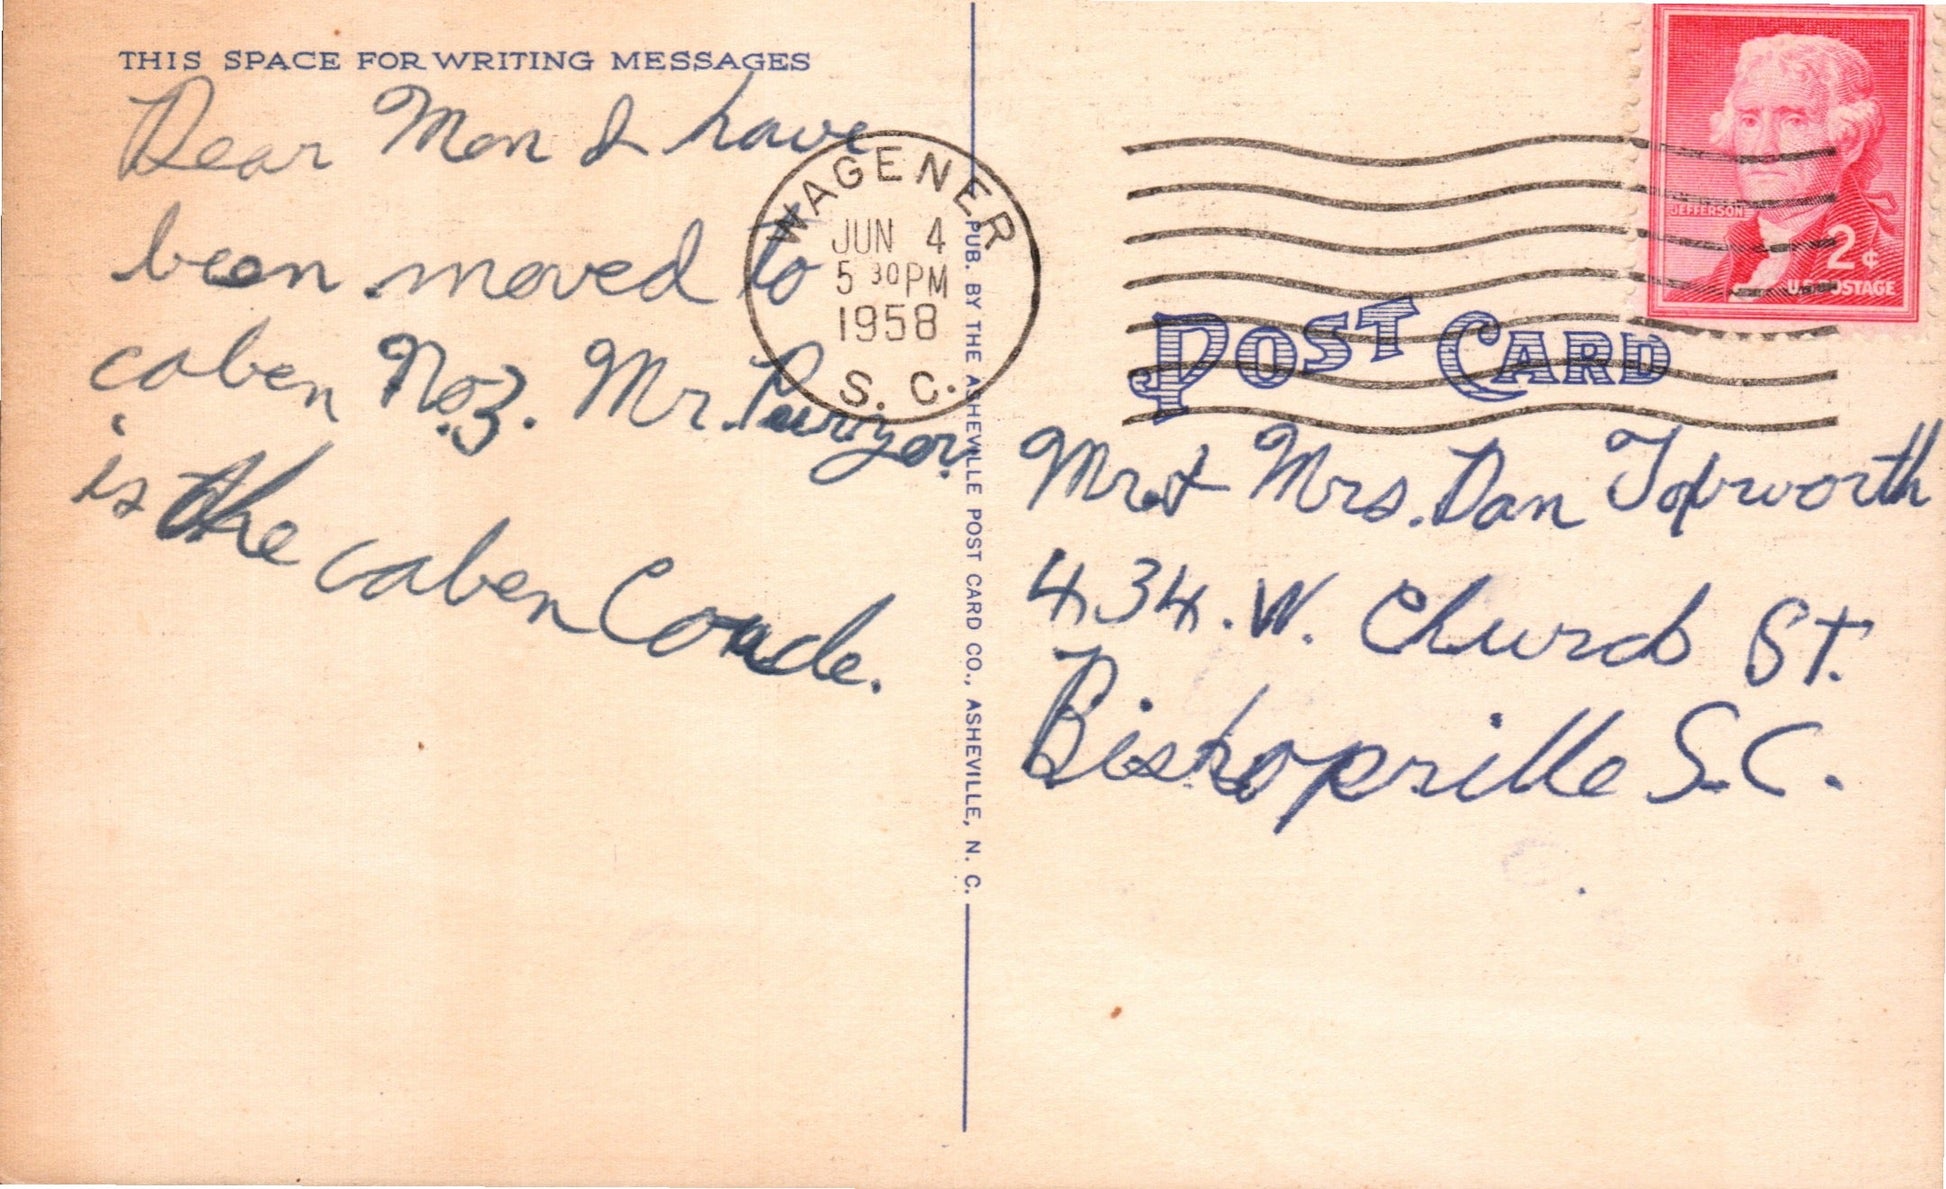 THIS SPACE FOR WRITING MESSAGES
Dear Mom I have
been moved to
caben No3. Mr.
is the caben Coade.
WAGENER
JUN 4
5 30 PM
1958
S. C.
PUB. BY THE ASHEVILLE POST CARD CO., ASHEVILLE, N. C.
JEFFERSON
2¢
U.S. POSTAGE
POST CARD
Mr. & Mrs. Dan
434. W. Church St.
Bishopville S.C.